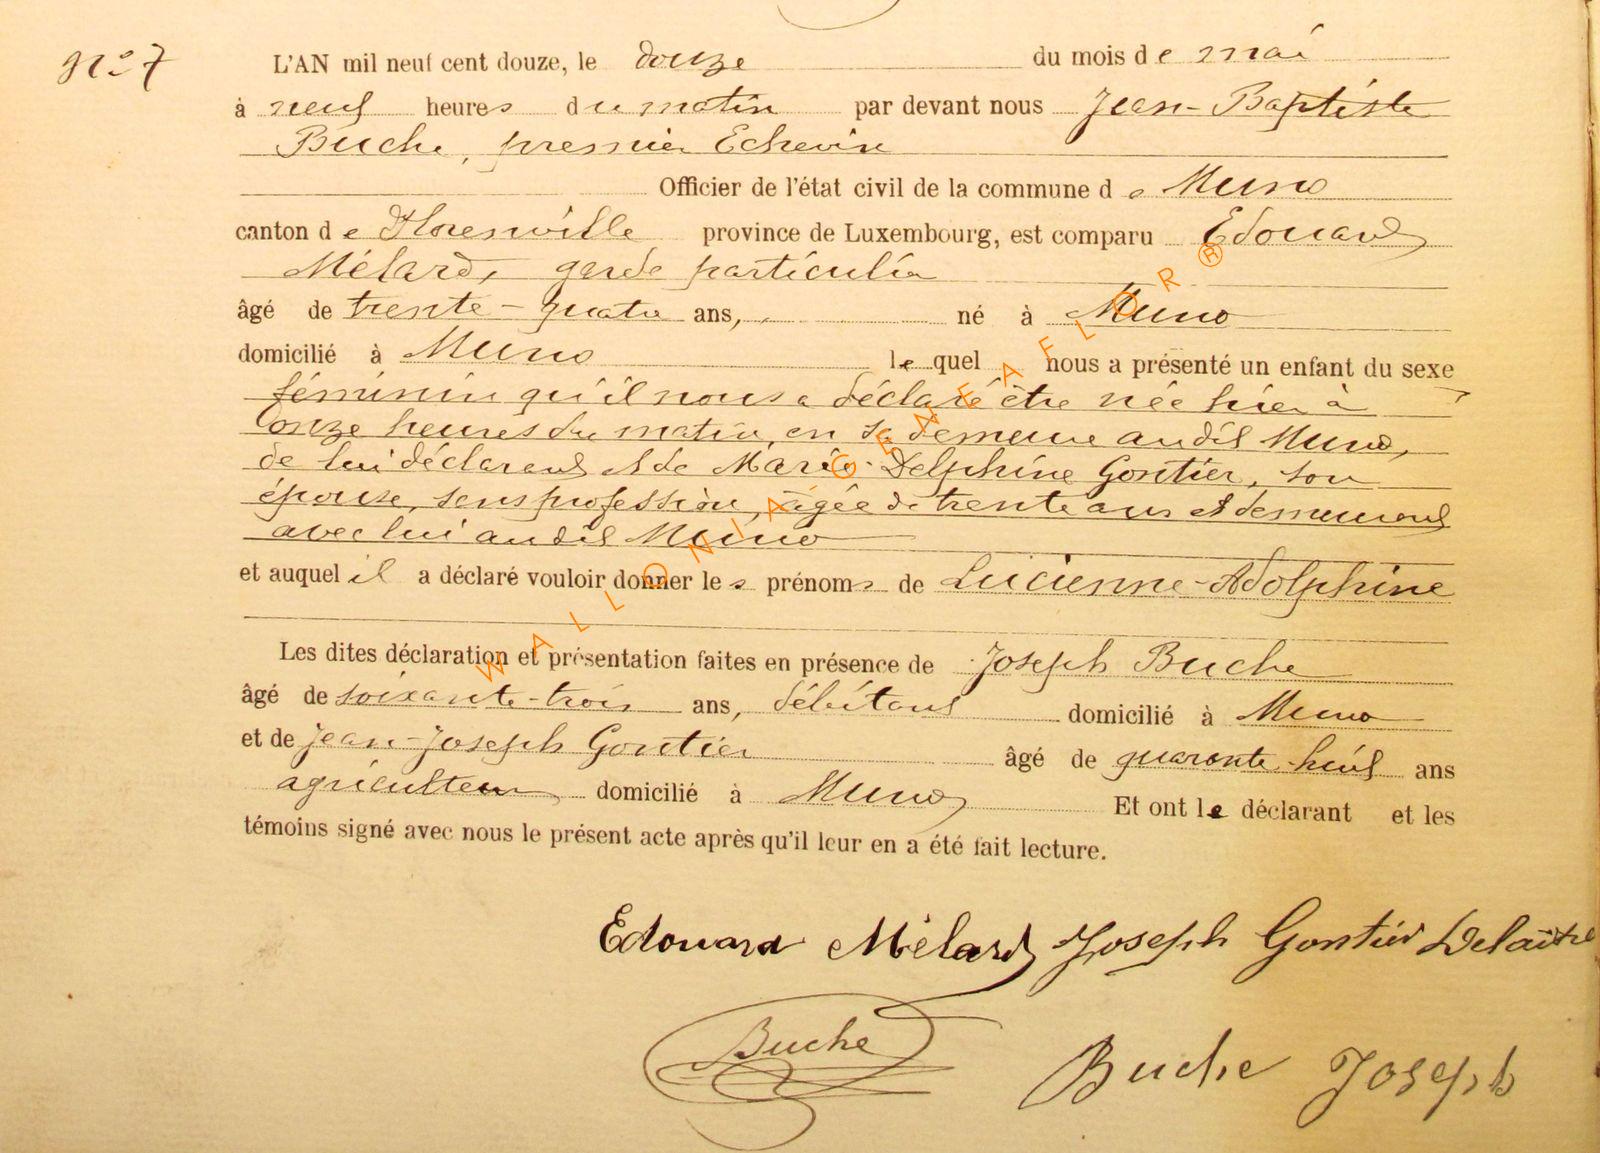 N° 7
L'AN mil neuf cent douze, le douze du mois de mai
à neuf heures du matin par devant nous Jean-Baptiste
Buche, premier Echevin
Officier de l'état civil de la commune de Muno
canton de Florenville province de Luxembourg, est comparu Edouard
Mélard, garde particulier
âgé de trente-quatre ans, né à Muno
domicilié à Muno lequel nous a présenté un enfant du sexe
féminin qu'il nous a déclaré être née hier à
onze heures du matin, en sa demeure audit Muno,
de lui déclarant et de Marie-Delphine Gontier, son
épouse, sans profession, âgée de trente ans et demeurant
avec lui audit Muno
et auquel il a déclaré vouloir donner les prénoms de Lucienne-Adolphine
Les dites déclaration et présentation faites en présence de Joseph Buche
âgé de soixante-trois ans, débitant domicilié à Muno
et de Jean-Joseph Gontier âgé de quarante-huit ans
agriculteur domicilié à Muno Et ont le déclarant et les
témoins signé avec nous le présent acte après qu'il leur en a été fait lecture.
Edouard Mélard Joseph Gontier Delaitre
Buche Buche Joseph
WALLONIA GENEAFLOR ®